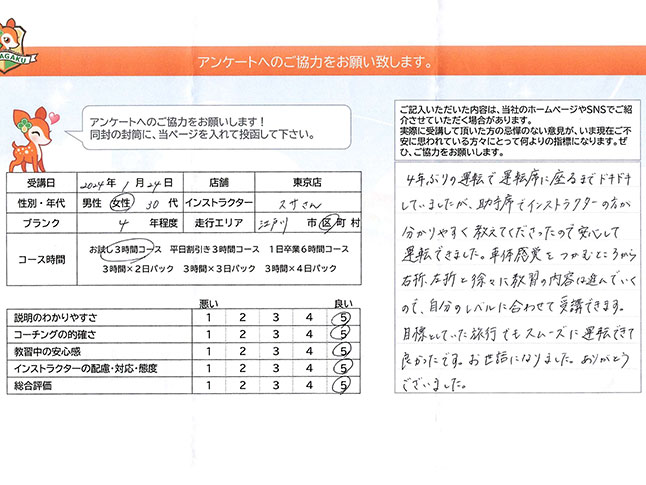 AGAKU
アンケートへのご協力をお願い致します。
アンケートへのご協力をお願いします！
同封の封筒に、当ページを入れて投函して下さい。
ご記入いただいた内容は、当社のホームページやSNSでご紹
介させていただく場合があります。
実際に受講して頂いた方の忌憚のない意見が、いま現在ご不
安に思われている方々にとって何よりの指標になります。ぜ
ひ、ご協力をお願いします。
受講日 2024年 1月 24日 店舗 東京店
性別・年代 男性 女性 30 代 インストラクター スサさん
ブランク 4 年程度 走行エリア 江戸川 市 区 町 村
コース時間 お試し3時間コース 平日割引き3時間コース 1日卒業6時間コース
3時間×2日パック 3時間×3日パック 3時間×4日パック
悪い 良い
説明のわかりやすさ 1 2 3 4 5
コーチングの的確さ 1 2 3 4 5
教習中の安心感 1 2 3 4 5
インストラクターの配慮・対応・態度 1 2 3 4 5
総合評価 1 2 3 4 5
4年ぶりの運転で運転席に座るまでドキドキ
していましたが、助手席でインストラクターの方が
分かりやすく教えてくださったので安心して
運転できました。車体感覚をつかむところから
右折、左折と徐々に教習の内容は進んでいく
ので、自分のレベルに合わせて受講できます。
目標としていた旅行でもスムーズに運転できて
良かったです。お世話になりました。ありがとう
ございました。